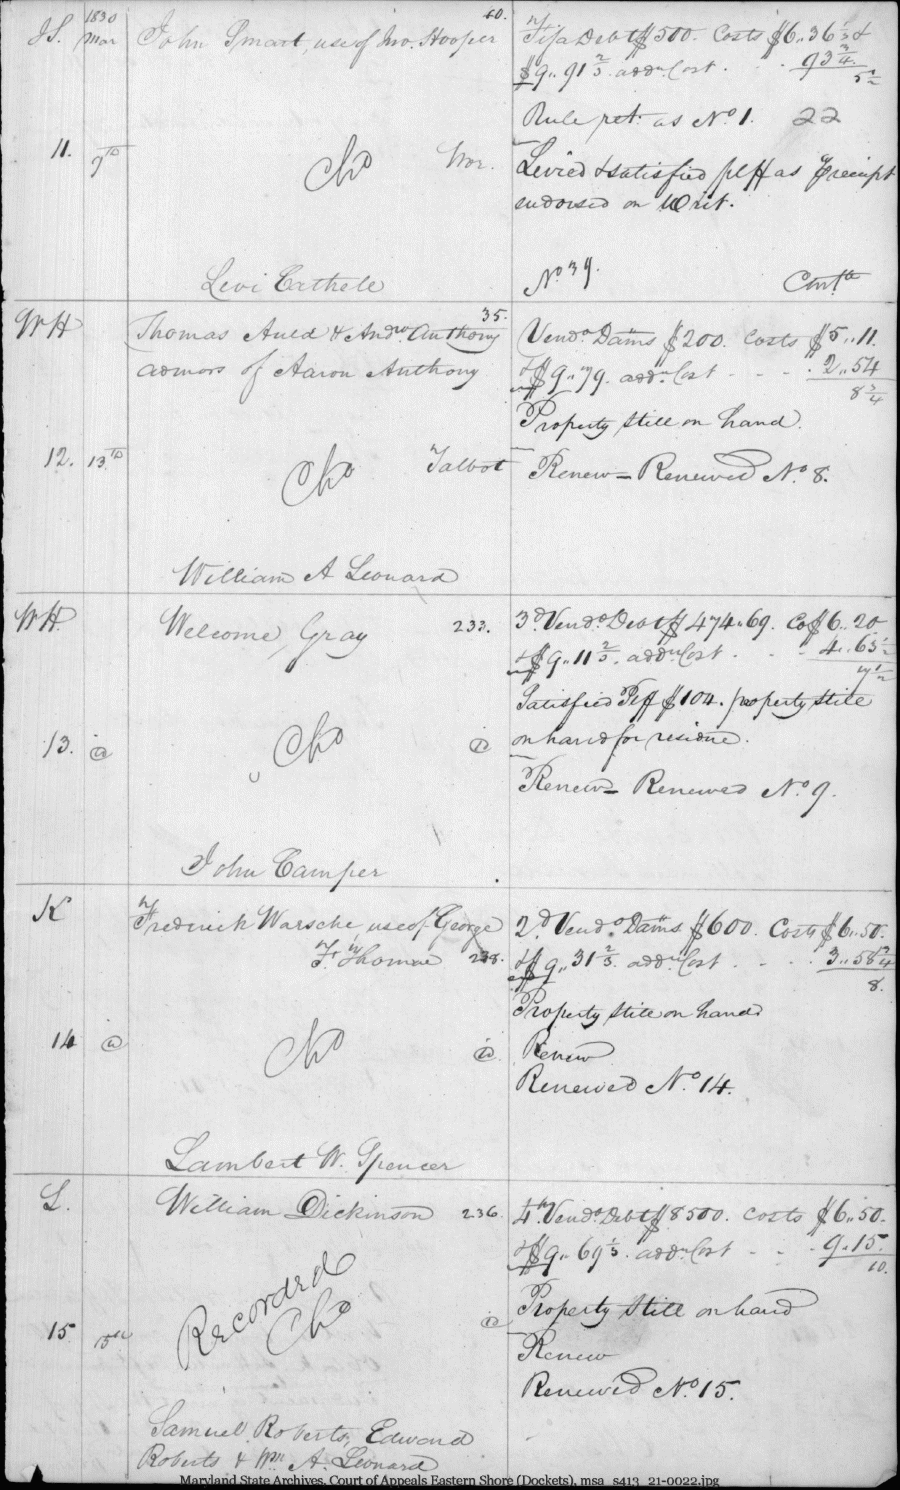 JS. 1830 Mar John Smart, use of Jno. Hooper 40. Fifa Debt $500. Costs $6..36 1/3 &
$9..91 2/3. addn. Cost. 93 3/4.
5 1/2
Rule ret. as No. 1. 22
11. 9th Cho Wor. Levied & satisfied plff as preceipt
endorsed on Writ.
Levi Cathele No. 39. Cont.
WH Thomas Auld & Andw. Anthony 35. Vendo. Dams $200. Costs $5..11.
admors of Aaron Anthony & $9..79. addn. Cost - - - 2..54
8 3/4
Property still on hand.
12. 13th Cho Talbot Renew - Renewed No. 8.
William A Leonard
WH. Welcome, Gray 233. 3d. Vendo. Debt $474..69. Co $6..20
& $9..11 2/3. addn. Cost - - 4..63 1/2
7 1/2
Satisfied Plff $104. property still
on hand for residue.
13. @ Cho @
Renew - Renewed No. 9.
John Camper
K Frederick Warsche, use of George
F. Thomas 238.
2d. Vendo. Dams $600. Costs $6..50.
& $9..31 2/3. addn. Cost - - - 3..58 3/4
8.
Property still on hand
14 @ Cho @ Renew
Renewed No. 14.
Lambert W. Spencer
L. William Dickinson 236. 4th. Vendo. Debt $8500. Costs $6..50.
& $9..69 1/3. addn. Cost - - - 9..15.
10.
Recorded
Property still on hand
15 Cho @
Renew
Renewed No. 15.
Samuel Roberts, Edward
Roberts & Wm. A. Leonard
Maryland State Archives, Court of Appeals Eastern Shore (Dockets), msa_s413_21-0022.jpg